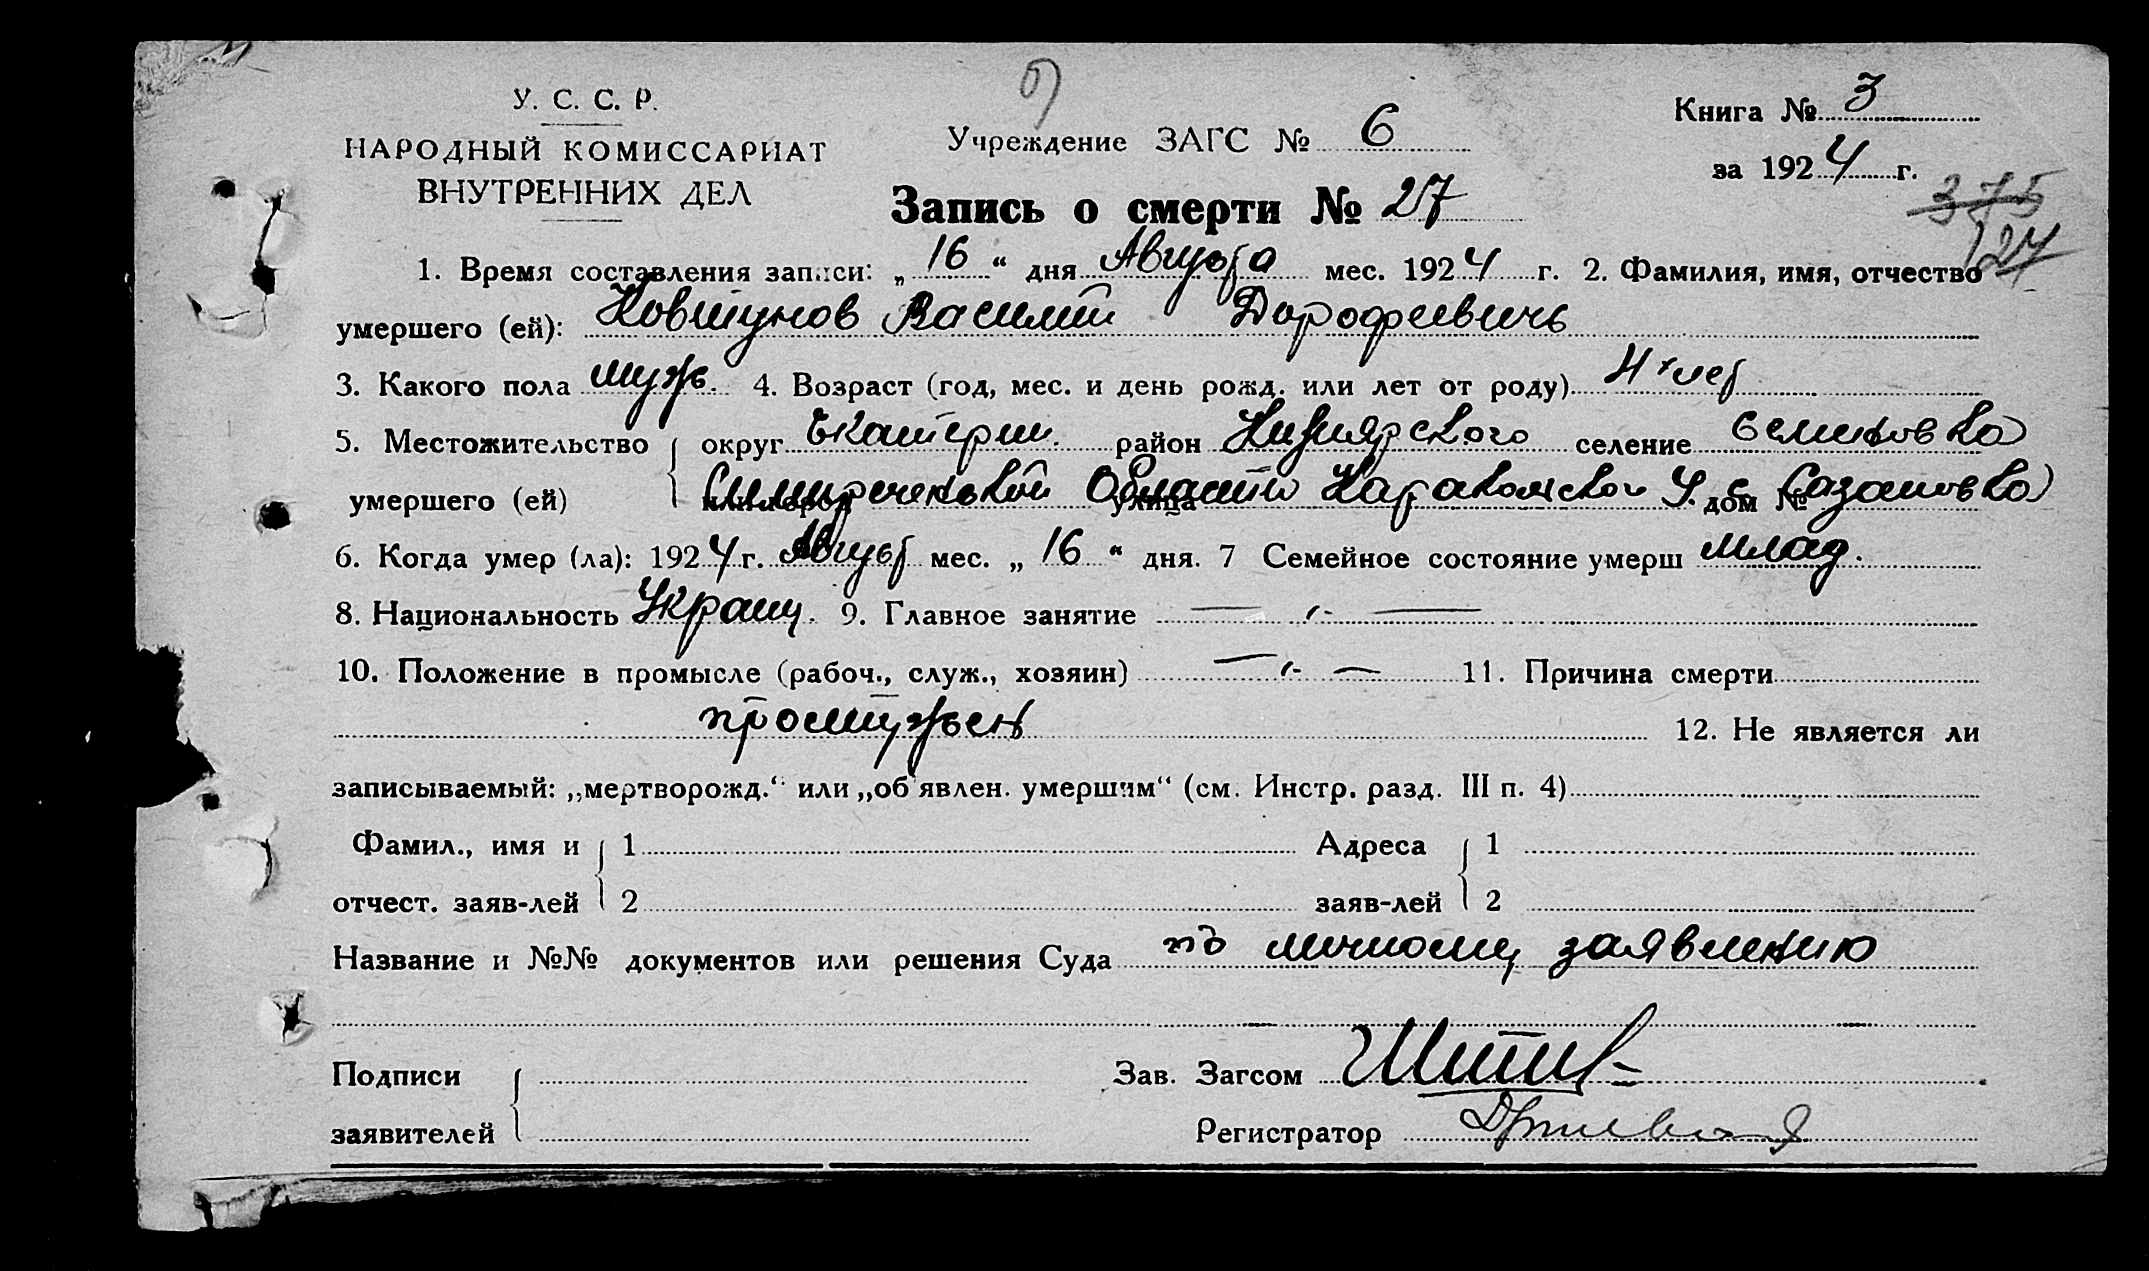 У. С. С. Р.
НАРОДНЫЙ КОМИССАРИАТ
ВНУТРЕННИХ ДЕЛ
Учреждение ЗАГС № 6
Книга № 3
за 1924 г.
Запись о смерти № 27
375
127
1. Время составления записи: „16“ дня Августа мес. 1924 г. 2. Фамилия, имя, отчество
умершего (ей): Ковтунов Василий Дорофеевичь
3. Какого пола муж. 4. Возраст (год, мес. и день рожд. или лет от роду) 4 лет
5. Местожительство округ Екатерин. район селение Семеновка
умершего (ей) или город улица дом № Семиреченской Области Каракольской У. с. Сазановка
6. Когда умер (ла): 1924 г. Август мес. „16“ дня. 7 Семейное состояние умерш Млад.
8. Национальность Украинц. 9. Главное занятие — „ —
10. Положение в промысле (рабоч., служ., хозяин) — „ — 11. Причина смерти
простужен 12. Не является ли
записываемый: „мертворожд.“ или „об'явлен. умершим“ (см. Инстр. разд. III п. 4)
Фамил., имя и 1 Адреса 1
отчест. заяв-лей 2 заяв-лей 2
Название и №№ документов или решения Суда по личному заявлению
Подписи Зав. Загсом
заявителей Регистратор